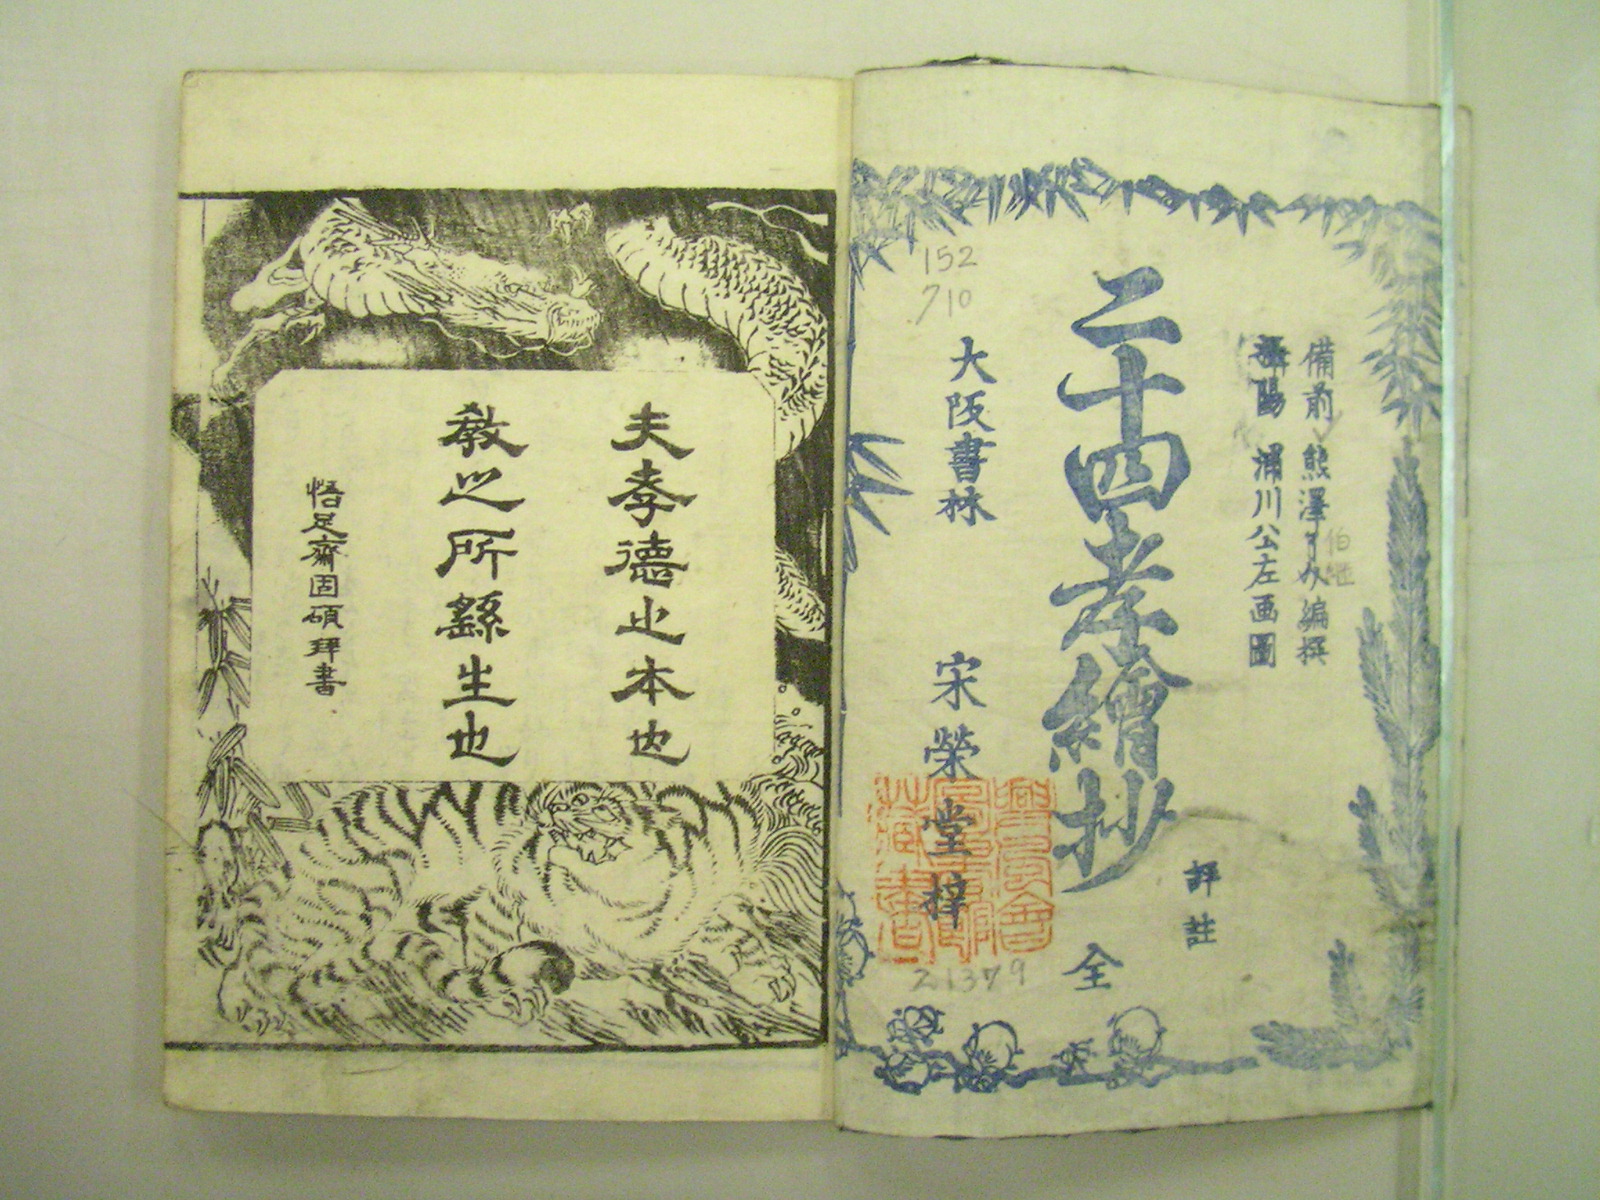 備前 熊澤 編撰
攝陽 浦川公左画圖
二十四孝繪抄
評註
全
152
710
大阪書林 宋榮堂梓
21379
夫孝德之本也
教之所繇生也
悟足齋固碩拜書